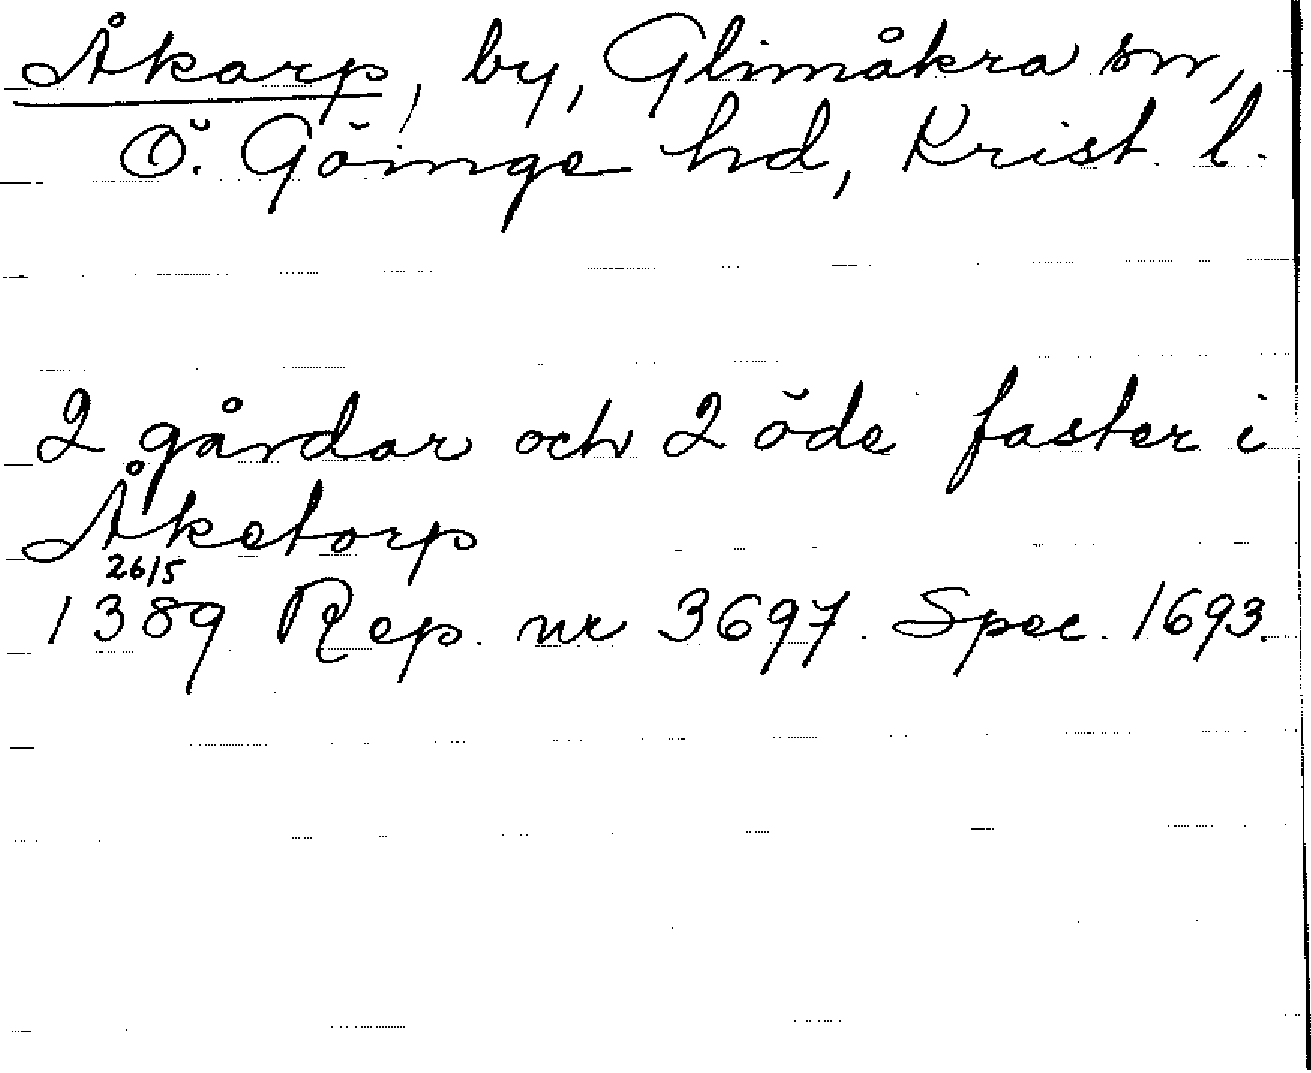 Åkarp, by, Glimåkra sn,
Ö. Göinge hd, Krist. l.
2 gårdar och 2 öde faster i
Åketorp
26/5
1389 Rep. nr 3697. Spec. 1693.